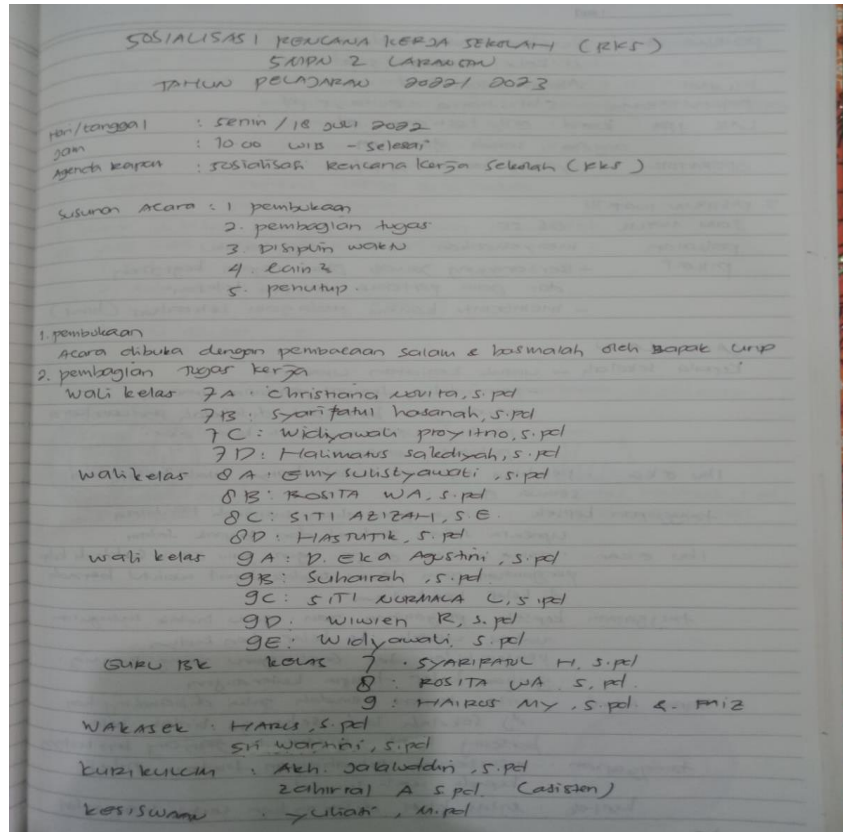 SOSIALISASI RENCANA KERJA SEKOLAH (RKS)
SMPN 2 LARANGAN
TAHUN PELAJARAN 2022/2023
Hari/tanggal : Senin / 18 Juli 2022
Jam : 10 00 WIB - Selesai
Agenda Rapat : Sosialisasi Rencana Kerja Sekolah (RKS)
Susunan Acara : 1 pembukaan
2. pembagian tugas
3 Disiplin waktu
4. Lain2
5. penutup.
1. pembukaan
Acara dibuka dengan pembacaan salam & basmalah oleh Bapak Urip
2. pembagian Tugas kerja
Wali kelas 7A : Christiana Novita, S.pd
7B : Syarifatul hasanah, S.pd
7C : Widiyawati proyitno, S.pd
7D : Halimatus Sakdiyah, S.pd
Wali kelas 8A : Emy Sulistyawati, S.pd
8B : ROSITA WA, S.pd
8C : SITI AZIZAH, S.E.
8D : HASTUTIK, S.pd
Wali kelas 9A : D. Eka Agustini, S.pd
9B : Suhairah, S.pd
9C : SITI NURMALA L, S.pd
9D : Wiwien R, S.pd
9E : Widyawati, S.pd
GURU BK KELAS 7 : SYARIFATUL H, S.pd
8 : ROSITA WA, S.pd.
9 : HAIRUS MY, S.pd. & FAIZ
WAKASEK : HARUS, S.pd
Sri Warnini, S.pd
Kurikulum : Akh. Jalaluddin, S.pd
Zahirral A S.pd. (asisten)
Kesiswaan : Yuliati, M.pd